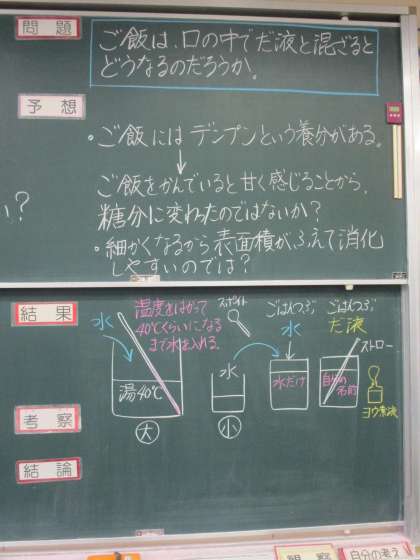 問題
ご飯は、口の中でだ液と混ざると
どうなるのだろうか。
予想
・ご飯にはデンプンという養分がある。
ご飯をかんでいると甘く感じることから、
糖分に変わったのではないか？
・細かくなるから表面積が、ふえて消化
しやすいのでは？
い？
結果
水
温度をはかって
40℃くらいになる
まで水を入れる。
湯40℃
大
スポイト
水
小
ごはんつぶ
水
水だけ
ごはんつぶ
だ液
ストロー
自分の
名前
ヨウ素液
考察
結論
観察
自分の考え